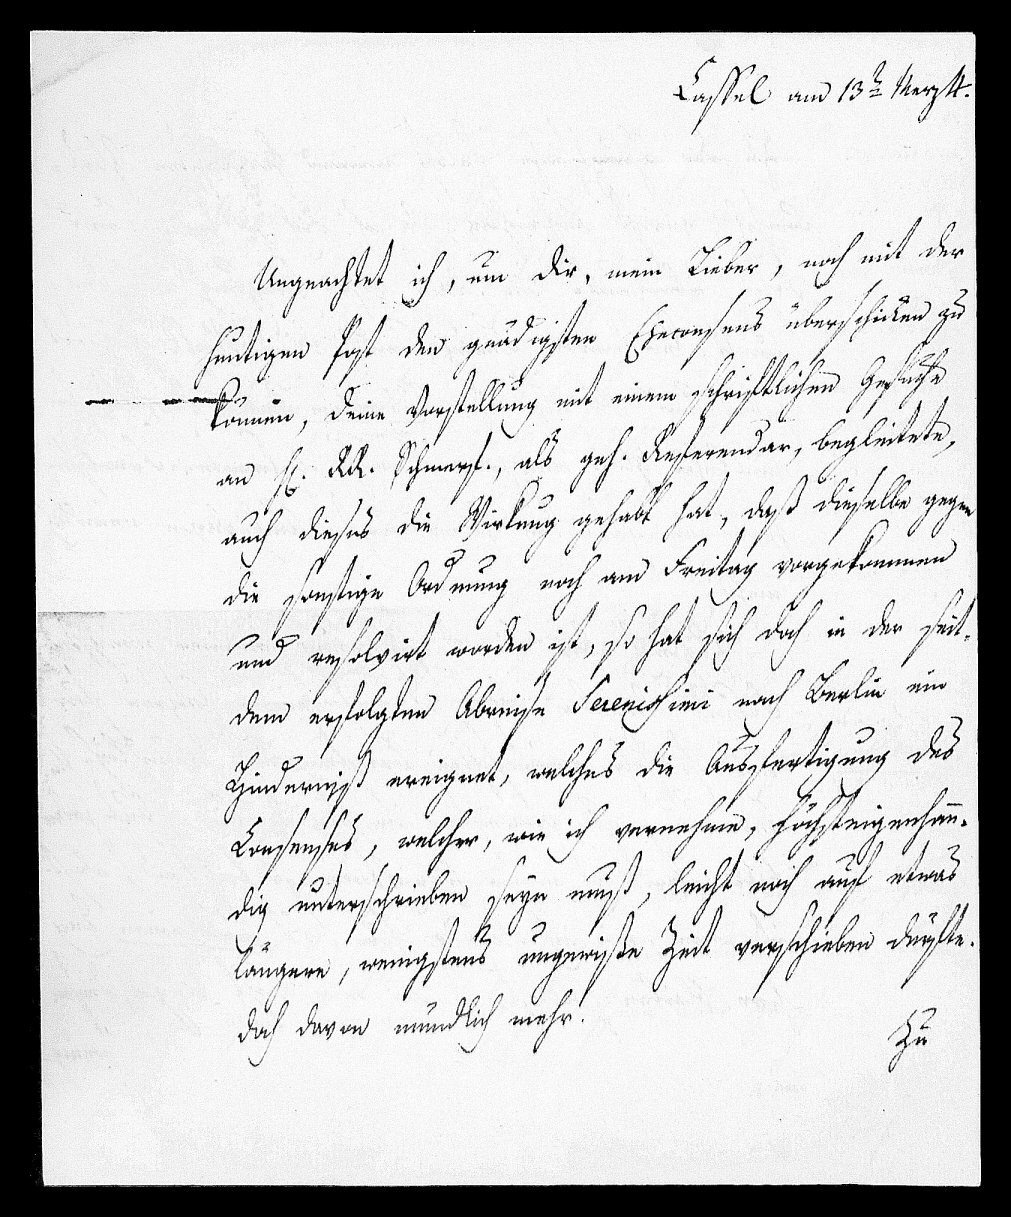 Cassel am 13t Merz
Ungeachtet ich, um dir, mein Lieber, noch mit der
heutigen Post den gnädigsten Eheconsens überschicken zu
können, deine Vorstellung mit einem schriftlichen Gesuche
an H. RR. Schmerf., als geh. Referendar, begleitete,
auch dieses die Wirkung gehabt hat, daß dieselbe gegen
die sonstige Ordnung noch am Freitag vorgekommen
und resolvirt worden ist, so hat sich doch in der seit-
dem erfolgten Abreise Serenissimi nach Berlin ein
Hinderniß ereignet, welches die Ausfertigung des
Consenses, welcher, wie ich vernehme, höchsteigenhän-
dig unterschrieben seyn muß, leicht noch auf etwas
längere, wenigstens ungewisse Zeit verschieben dürfte.
doch davon mündlich mehr.
Zu